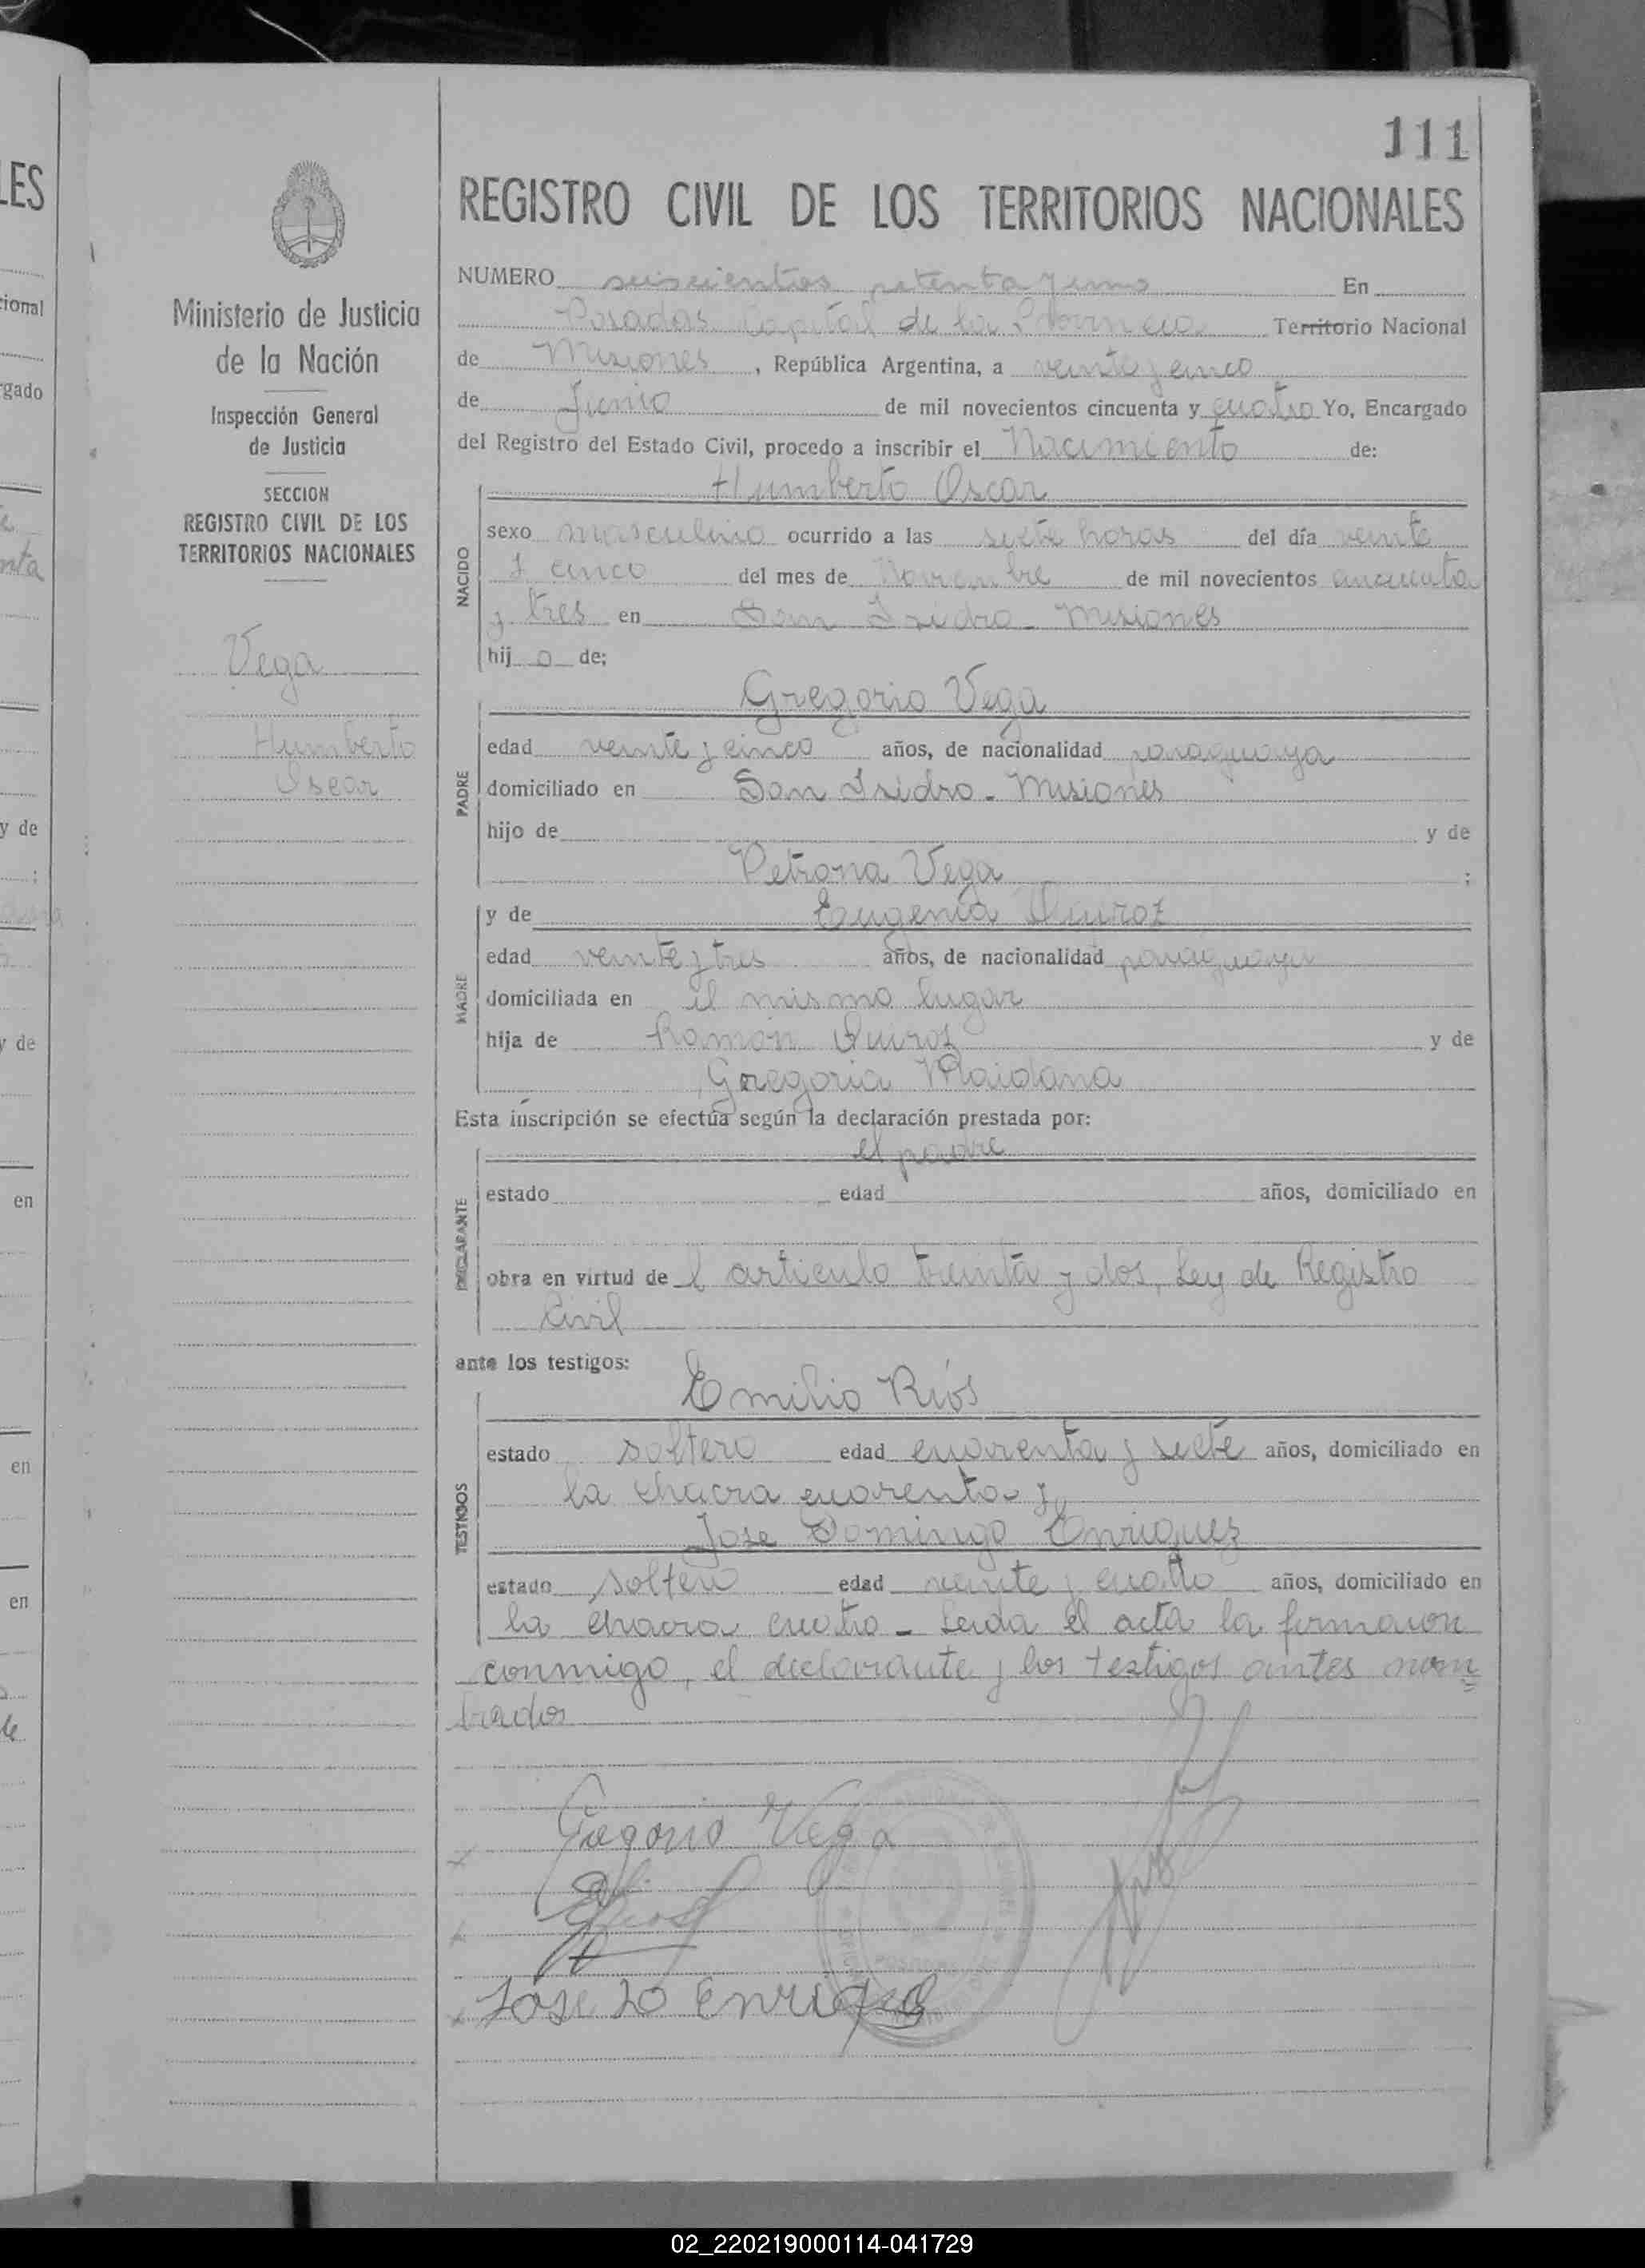 111
REGISTRO CIVIL DE LOS TERRITORIOS NACIONALES
Ministerio de Justicia
de la Nación
Inspección General
de Justicia
SECCION
REGISTRO CIVIL DE LOS
TERRITORIOS NACIONALES
Vega
Humberto
Oscar
NUMERO seiscientos setenta y uno En
Posadas Capital de la Provincia Territorio Nacional
de Misiones, República Argentina, a veinte y cinco
de Junio de mil novecientos cincuenta y cuatro Yo, Encargado
del Registro del Estado Civil, procedo a inscribir el Nacimiento de:
Humberto Oscar
NACIDO
sexo masculino ocurrido a las siete horas del día veinte
y cinco del mes de Noviembre de mil novecientos cincuenta
y tres en San Isidro - Misiones
hij o de:
Gregorio Vega
PADRE
edad veinte y cinco años, de nacionalidad paraguaya
domiciliado en San Isidro - Misiones
hijo de y de
Petrona Vega ;
y de Eugenia Quiroz
MADRE
edad veinte y tres años, de nacionalidad paraguaya
domiciliada en el mismo lugar
hija de Ramón Quiroz y de
Gregoria Maidana
Esta inscripción se efectúa según la declaración prestada por:
el padre
DECLARANTE
estado edad años, domiciliado en
obra en virtud de l artículo treinta y dos, Ley de Registro
Civil
ante los testigos:
Emilio Ríos
TESTIGOS
estado soltero edad cuarenta y siete años, domiciliado en
la chacra cuarenta y
Jose Domingo Enriquez
estado soltero edad veinte y cuatro años, domiciliado en
la chacra cuatro - Leida el acta la firmaron
conmigo, el declarante y los testigos antes nom
brados
Gregorio Vega
ERios
José Do Enriquez
POSADAS
LES
cional
rgado
nta
y de
;
y de
en
en
en
02_220219000114-041729